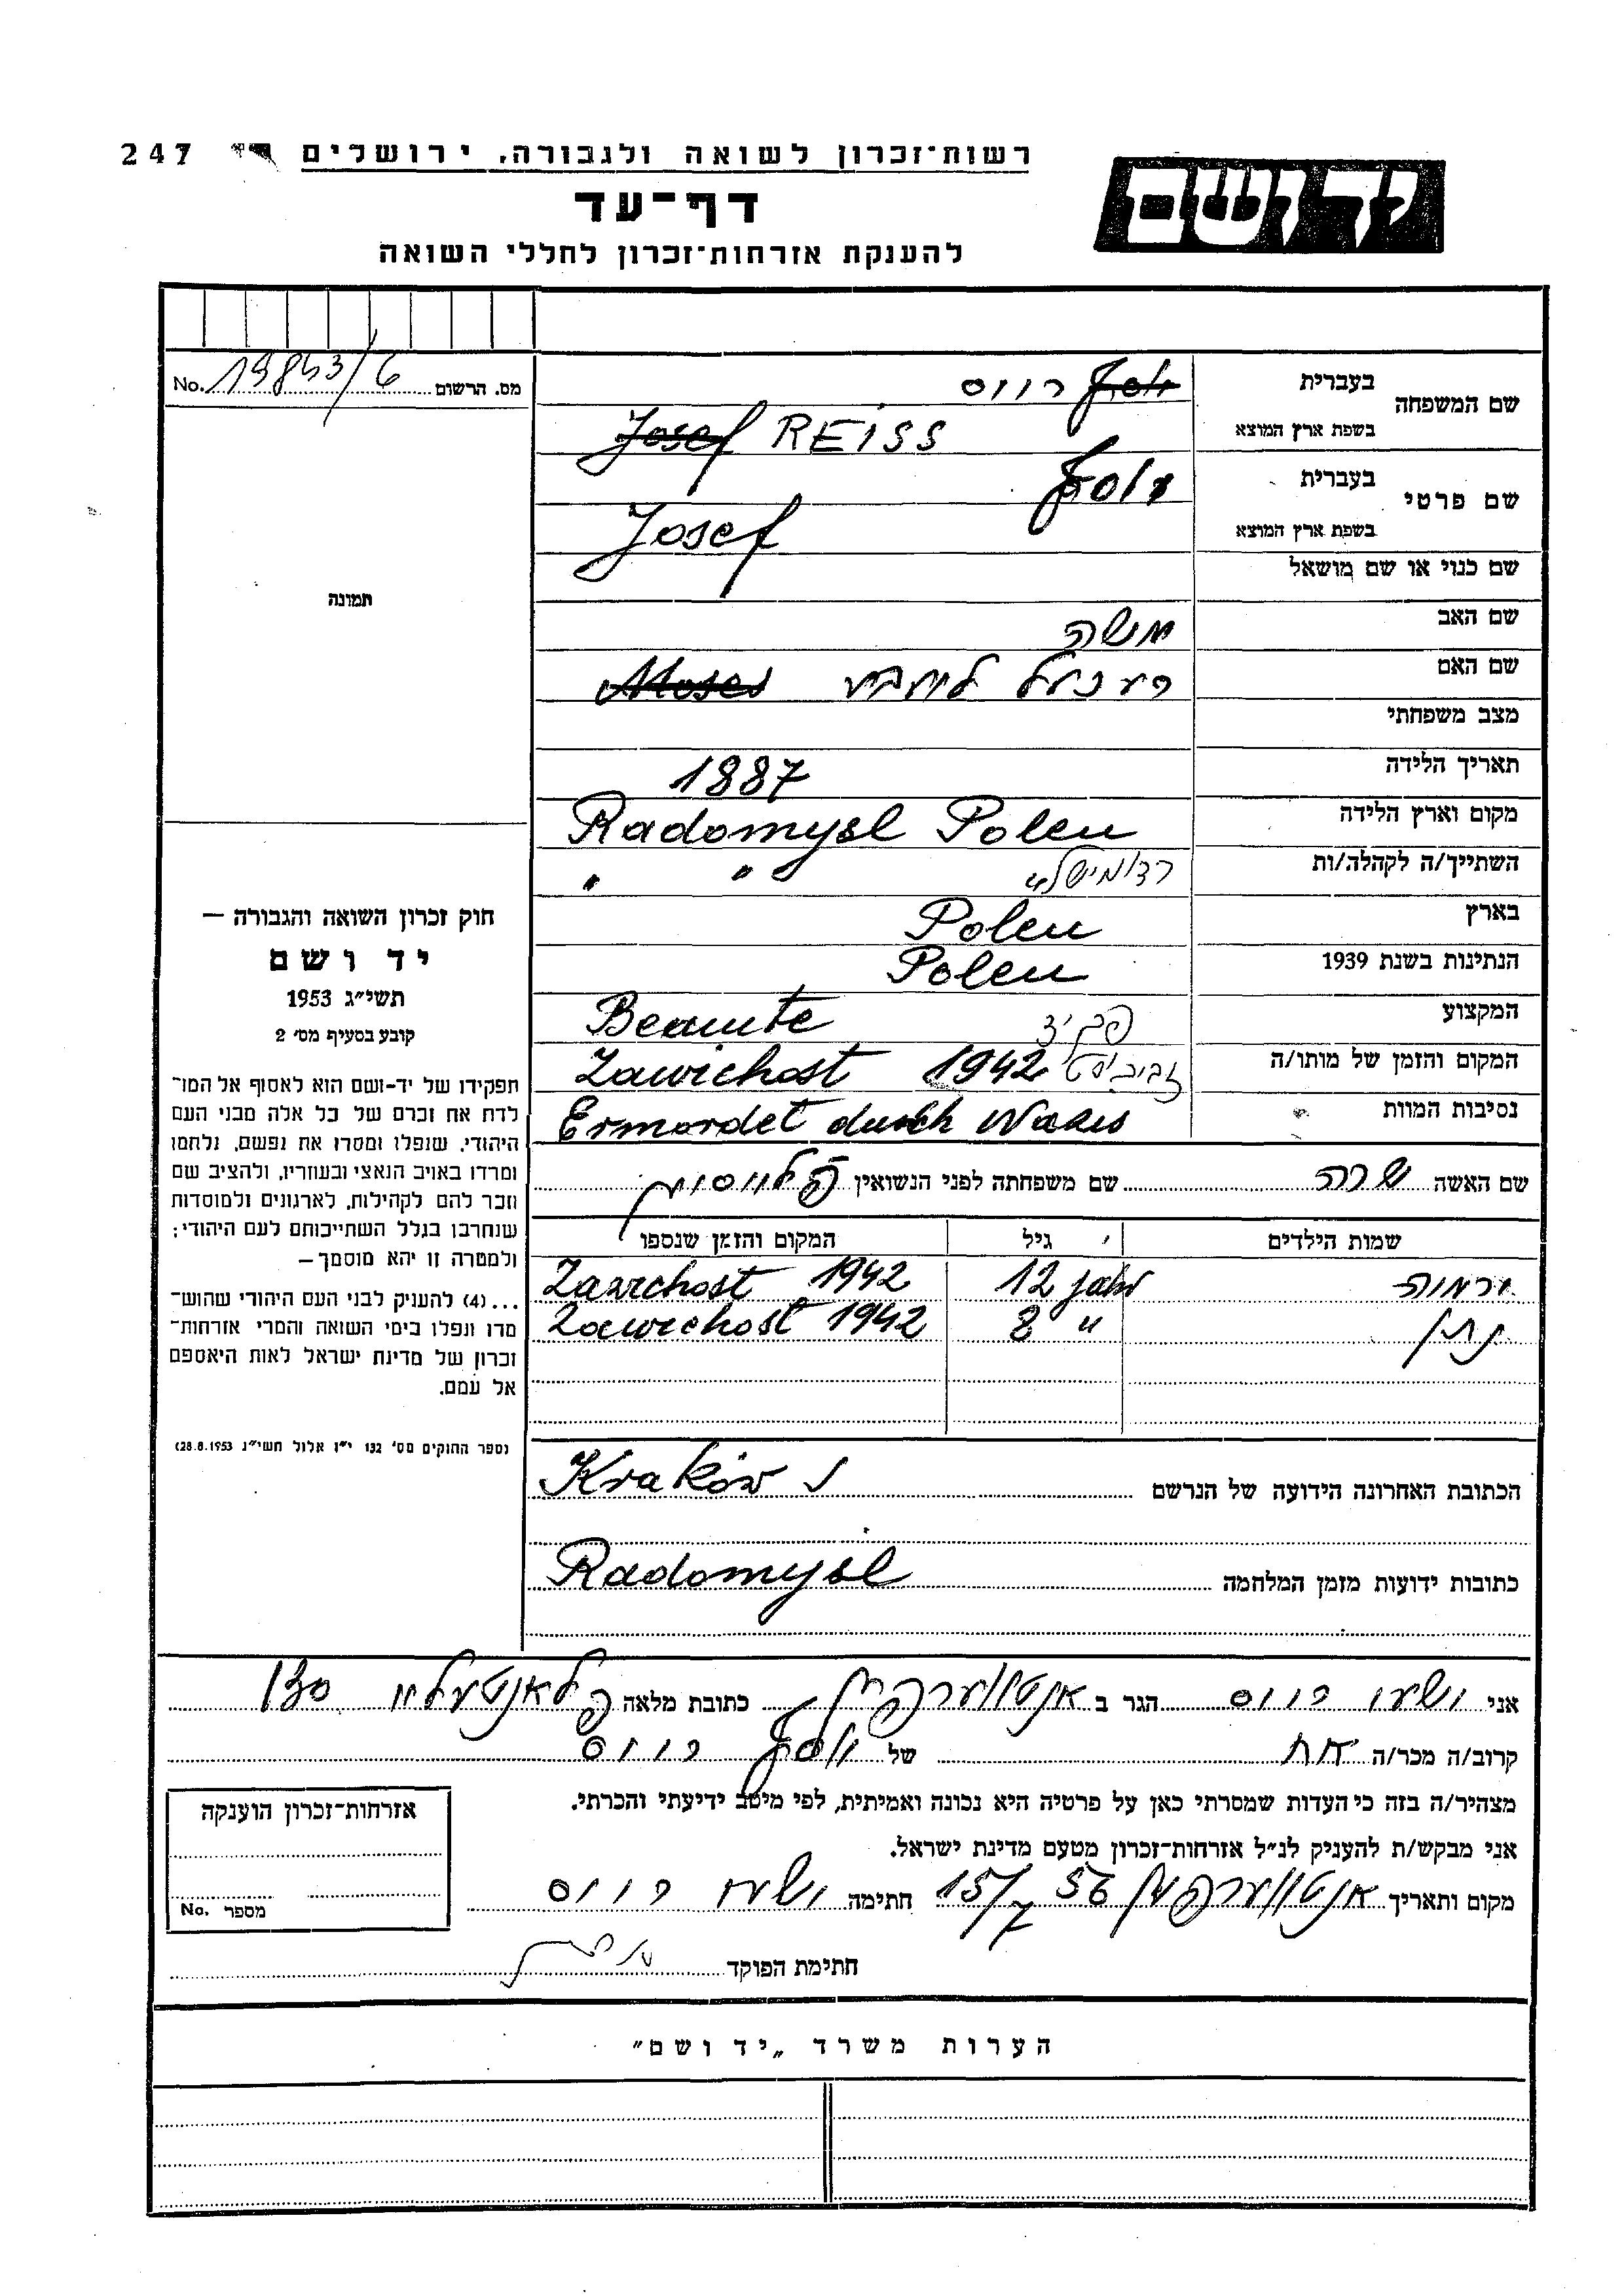 רשות־זכרון לשואה ולגבורה, ירושלים 247
יד ושם
דף־עד
להענקת אזרחות־זכרון לחללי השואה
מס. הרשום No. 19843/6
שם המשפחה בעברית יוסף רייס
בשפת ארץ המוצא Josef REISS
שם פרטי בעברית יוסף
בשפת ארץ המוצא Josef
שם כנוי או שם מושאל
שם האב משה
שם האם Moses
מצב משפחתי
תאריך הלידה 1887
מקום וארץ הלידה Radomysl Polen
השתייך/ה לקהלה/ות רדומישלי " "
בארץ Polen
הנתינות בשנת 1939 Polen
המקצוע Beamte פקיד
המקום והזמן של מותו/ה Zawichost 1942
נסיבות המוות Ermordet durch Nazis
תמונה
חוק זכרון השואה והגבורה —
יד ושם
תשי״ג 1953
קובע בסעיף מס׳ 2
תפקידו של יד־ושם הוא לאסוף אל המו־
לדת את זכרם של כל אלה מבני העם
היהודי, שנפלו ומסרו את נפשם, נלחמו
ומרדו באויב הנאצי ובעוזריו, ולהציב שם
וזכר להם לקהילות, לארגונים ולמוסדות
שנחרבו בגלל השתייכותם לעם היהודי;
ולמטרה זו יהא מוסמך—
...(4) להעניק לבני העם היהודי שהוש־
מדו ונפלו בימי השואה והמרי אזרחות־
זכרון של מדינת ישראל לאות היאספם
אל עמם.
(ספר החוקים מס׳ 132 י״ז אלול תשי״ג 28.8.1953)
שם האשה שרה שם משפחתה לפני הנשואין
שמות הילדים גיל המקום והזמן שנספו
ירמיה 12 Jahr Zawichost 1942
נתן 8 " Zawichost 1942
הכתובת האחרונה הידועה של הנרשם Kraków
כתובות ידועות מזמן המלחמה Radomysl
אני ישעי רייס הגר ב אנטווערפען כתובת מלאה פלאנטעליי 130
קרוב/ה מכר/ה אח של יוסף רייס
מצהיר/ה בזה כי העדות שמסרתי כאן על פרטיה היא נכונה ואמיתית, לפי מיטב ידיעתי והכרתי.
אני מבקש/ת להעניק לנ״ל אזרחות־זכרון מטעם מדינת ישראל.
מקום ותאריך אנטווערפען 15/7 56 חתימה ישעי רייס
חתימת הפוקד
אזרחות־זכרון הוענקה
מספר No.
הערות משרד „יד ושם״